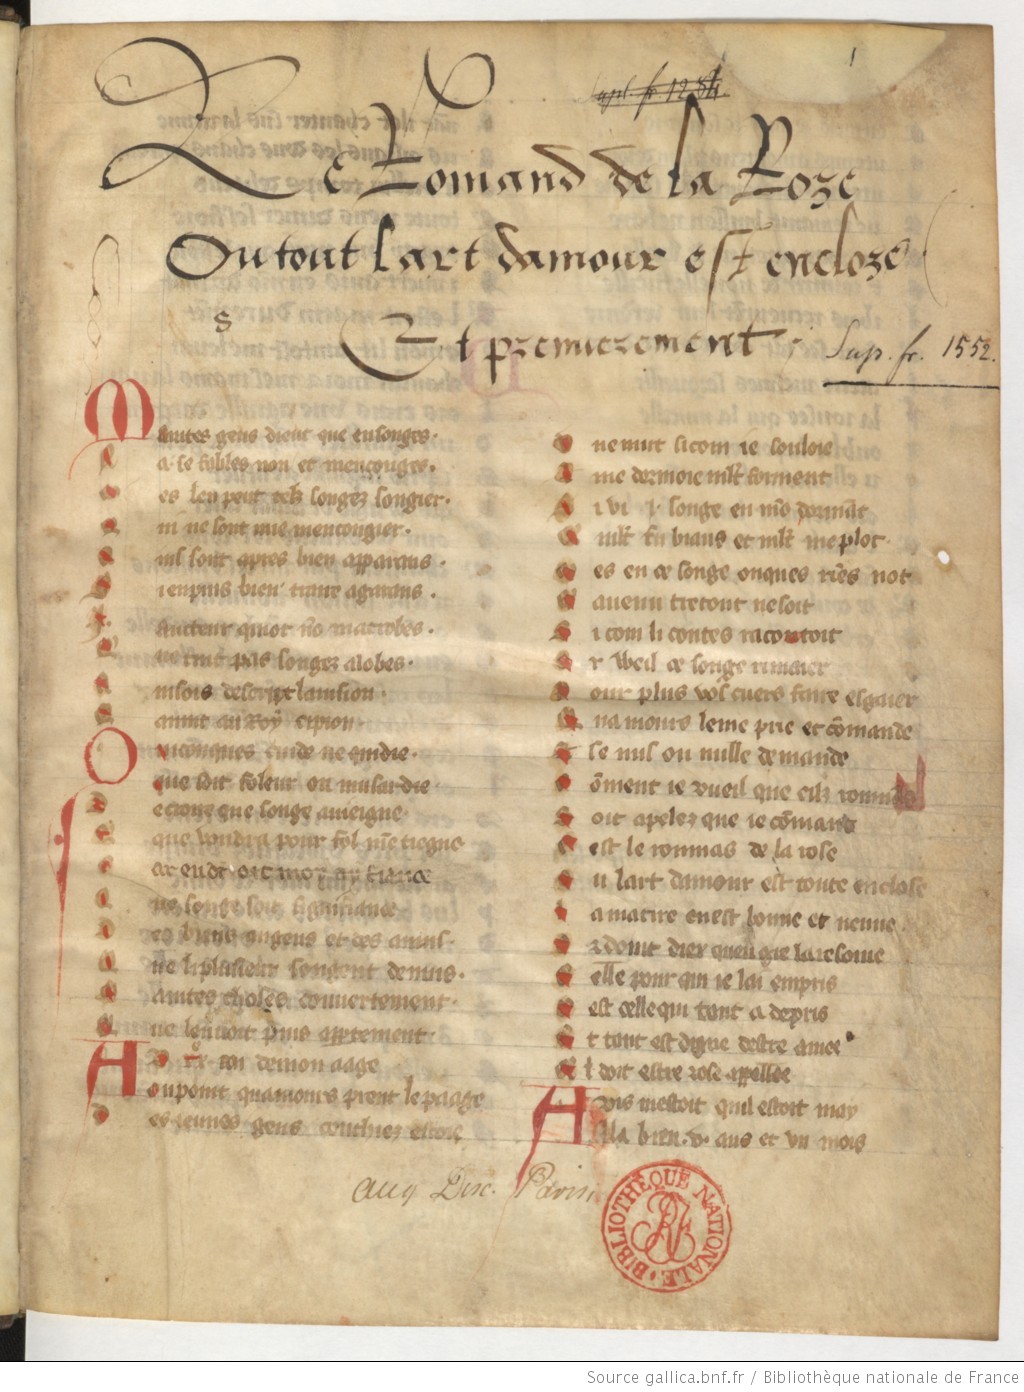 1
Supl. fr. 1284
Le Romand de la Roze
Ou tout lart damour est encloze
Et premierement
Sup. fr. 1552.
Maintes gens dient que en songes.
a se fables non et mençonges.
es len peut telz songez songier.
ni ne sont mie mencongier.
ins sont apres bien apparans.
i en puis bien traire a garans.
aucteur qui ot nõ macrobes.
ne tint pas songez a lobes.
insois descript lauision.
auint au Roy cipion.
Quiconques cuide ne qui die.
que soit foleur ou musardie.
e croire que songe auiegne.
que voudra pour fol mẽ tiegne
ar endroit moy ay fiance
ue songe soit signifiance
es biens au gens et des anuis.
ue li plusieur songent de nuis.
aintes choses couuertement.
ue len uoit puis appertement.
de mon aage
ou point quamours prent le paage
es ieunes gens couchiez estoie
ne nuit si com ie souloie
me dormoie mlt forment
i vi .i. songe en mõ dormãt
mlt fu biaus et mlt me plot.
es en ce songe onques riẽs not
auenu tretout ne soit
i com li contes racontoit
r weil ce songe rimaier
our plus voz cuers faire esgaier
na mours le me prie et cõmande
se nus ou nulle demande
õment ie vueil que cilz rommãs
oit apelez que ie cõmans
est le rommas de la rose
u lart damour est toute enclose
a matire en est bonne et neuue
r doint dier quen gre la resoiue
elle pour qui ie lai empris
est celle qui tant a de pris
t tant est digne destre amee
l doit estre rose appellee
Auis mestoit quil estoit may
il a bien .v. ans et vn mois
Aug Disc. Paris
BIBLIOTHÈQUE NATIONALE
Source gallica.bnf.fr / Bibliothèque nationale de France